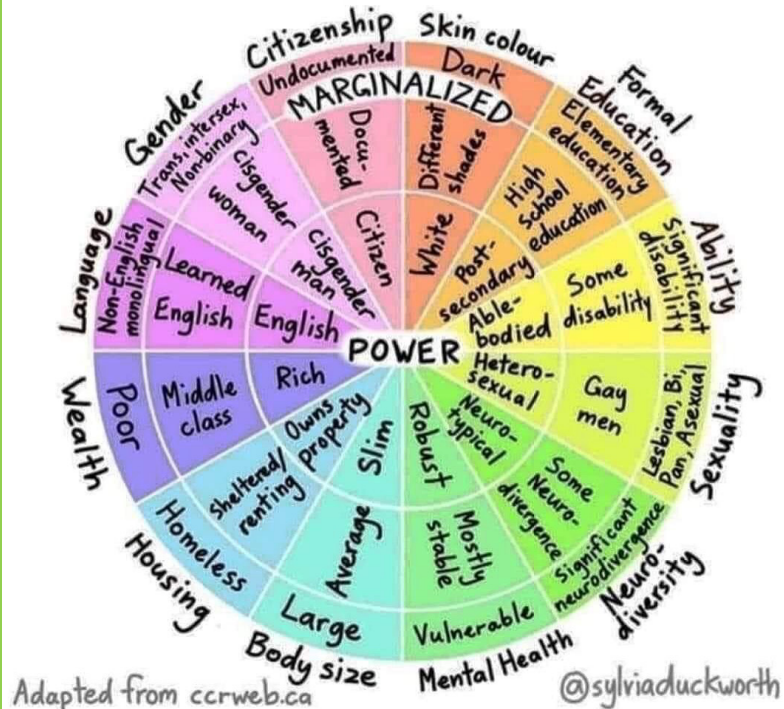 Citizenship
Undocumented
Docu-
mented
Citizen
Skin colour
Dark
Different
shades
White
Formal
Education
Elementary
education
High
school
education
Post-
secondary
Ability
Significant
disability
Some
disability
Able-
bodied
Sexuality
Lesbian, Bi,
Pan, Asexual
Gay
men
Hetero-
sexual
Neuro-
diversity
Significant
neurodivergence
Some
Neuro-
divergence
Neuro-
typical
Mental Health
Vulnerable
Mostly
stable
Robust
Body size
Large
Average
Slim
Housing
Homeless
Sheltered/
renting
Owns
property
Wealth
Poor
Middle
class
Rich
Language
Non-English
monolingual
Learned
English
English
Gender
Trans, intersex,
Nonbinary
cisgender
woman
cisgender
man
MARGINALIZED
POWER
Adapted from ccrweb.ca
@sylviaduckworth